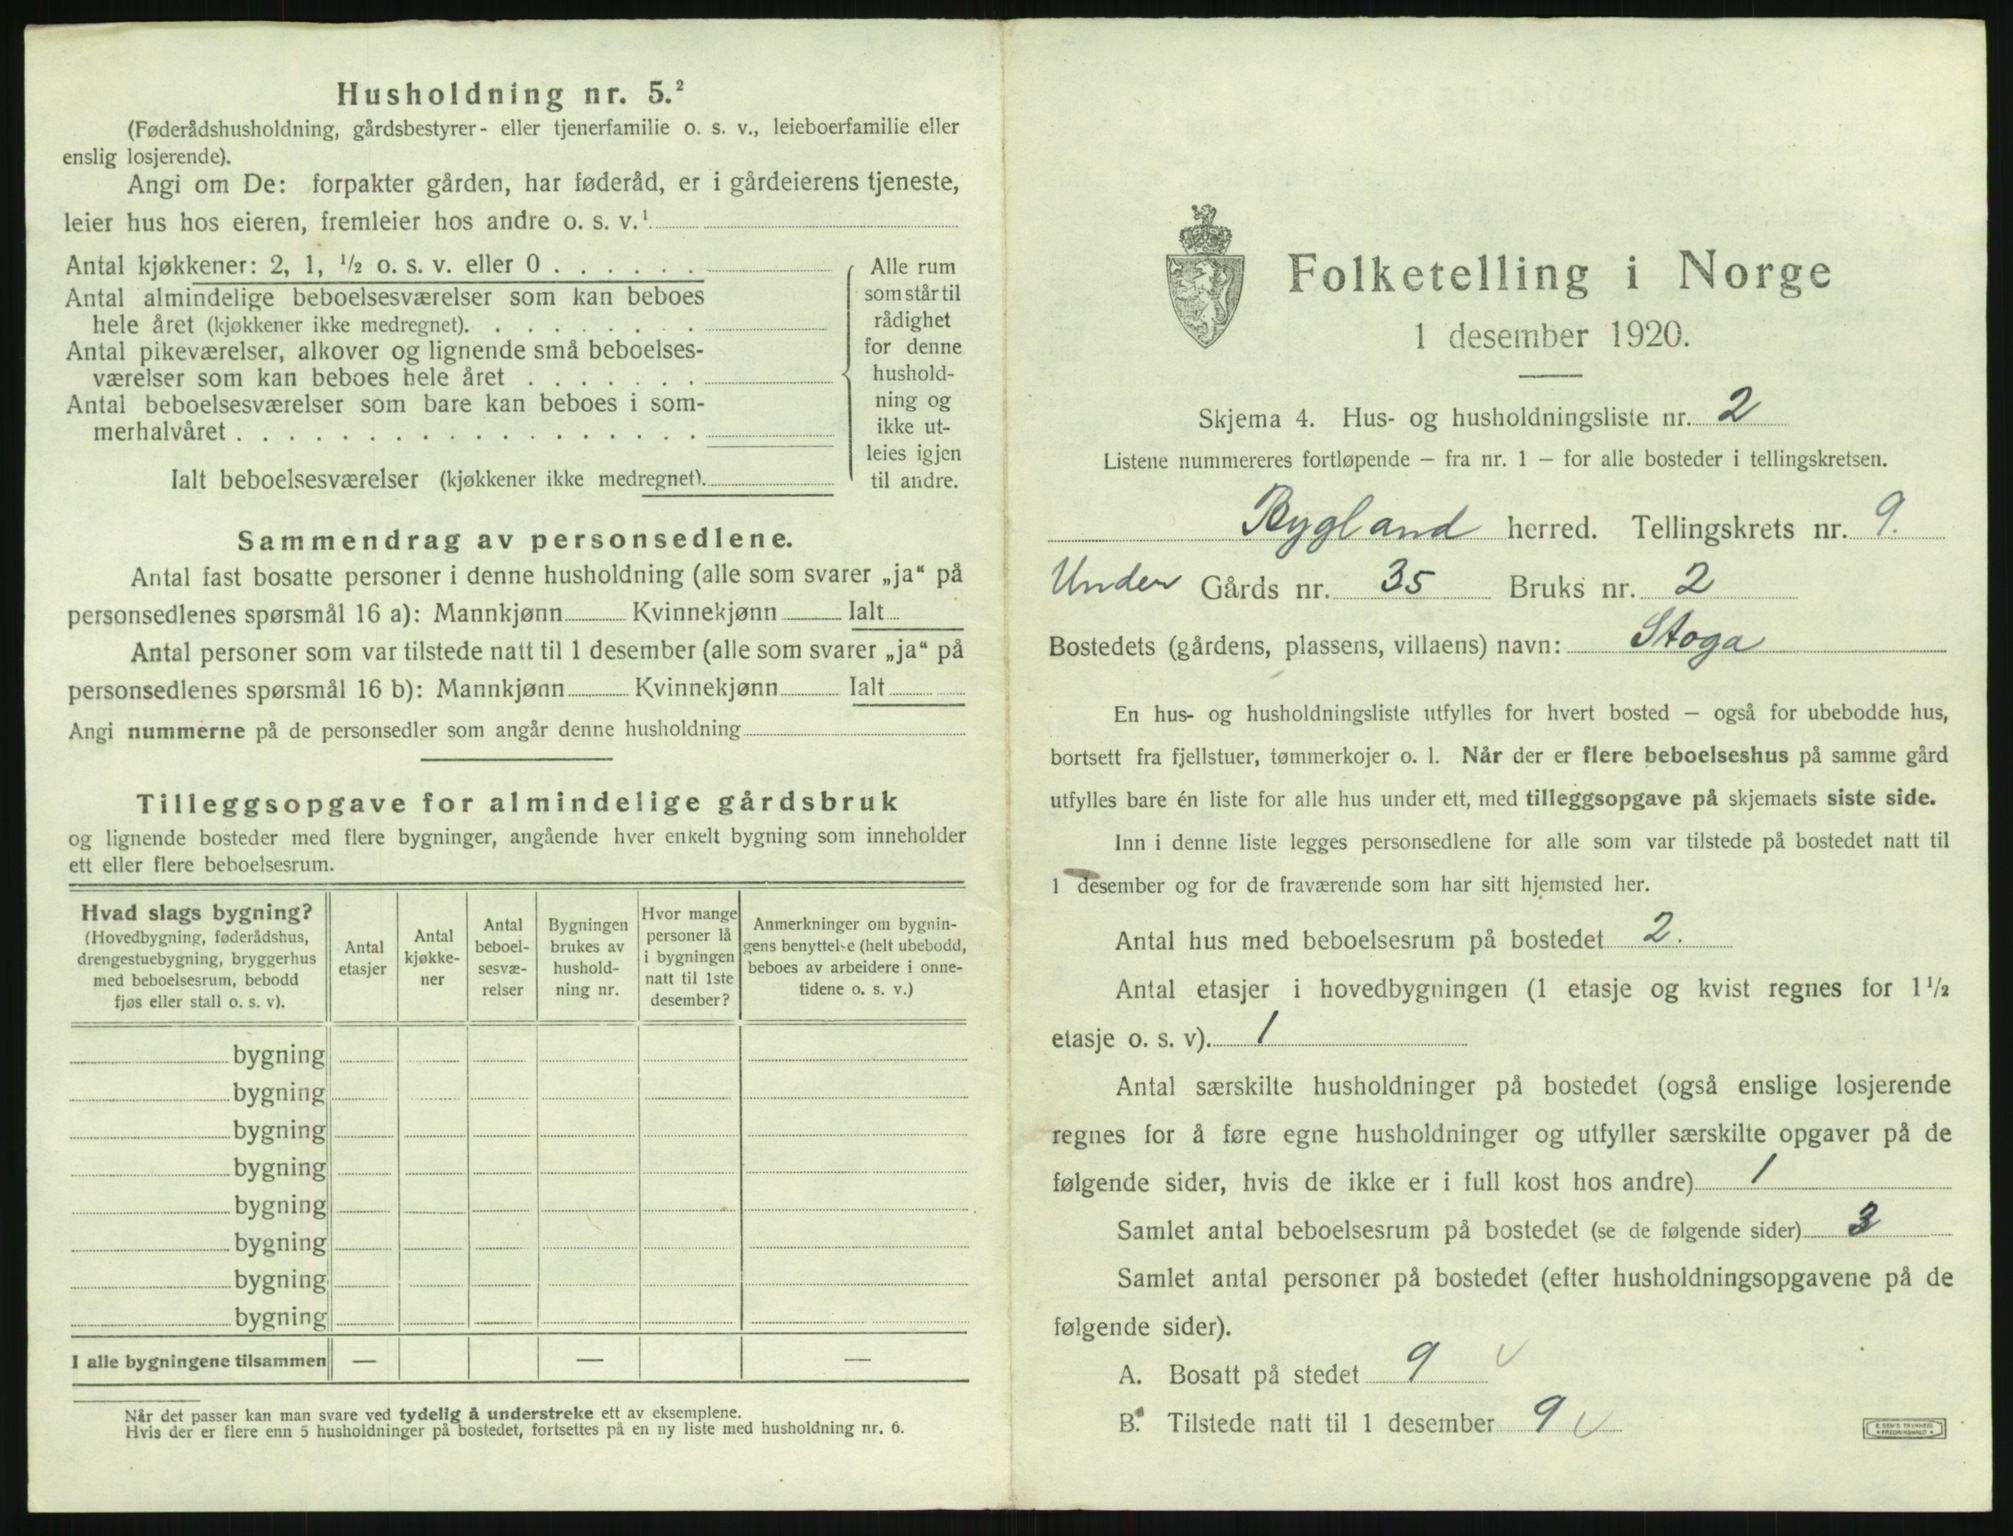 Husholdning nr. 5.²
(Føderådshusholdning, gårdsbestyrer- eller tjenerfamilie o. s. v., leieboerfamilie eller
enslig losjerende).
Angi om De: forpakter gården, har føderåd, er i gårdeierens tjeneste,
leier hus hos eieren, fremleier hos andre o. s. v.¹
Antal kjøkkener: 2, 1, ½ o. s. v. eller 0
Antal almindelige beboelsesværelser som kan beboes
hele året (kjøkkener ikke medregnet).
Antal pikeværelser, alkover og lignende små beboelses-
værelser som kan beboes hele året
Antal beboelsesværelser som bare kan beboes i som-
merhalvåret
Ialt beboelsesværelser (kjøkkener ikke medregnet).
Alle rum
som står til
rådighet
for denne
hushold-
ning og
ikke ut-
leies igjen
til andre.
Sammendrag av personsedlene.
Antal fast bosatte personer i denne husholdning (alle som svarer „ja“ på
personsedlenes spørsmål 16 a): Mannkjønn Kvinnekjønn Ialt
Antal personer som var tilstede natt til 1 desember (alle som svarer „ja“ på
personsedlenes spørsmål 16 b): Mannkjønn Kvinnekjønn Ialt
Angi nummerne på de personsedler som angår denne husholdning
Tilleggsopgave for almindelige gårdsbruk
og lignende bosteder med flere bygninger, angående hver enkelt bygning som inneholder
ett eller flere beboelsesrum.
Hvad slags bygning?
(Hovedbygning, føderådshus,
drengestuebygning, bryggerhus
med beboelsesrum, bebodd
fjøs eller stall o. s. v).
Antal
etasjer
Antal
kjøkke-
ner
Antal
beboel-
sesvæ-
relser
Bygningen
brukes av
hushold-
ning nr.
Hvor mange
personer lå
i bygningen
natt til 1ste
desember?
Anmerkninger om bygnin-
gens benyttelse (helt ubebodd,
beboes av arbeidere i onne-
tidene o. s. v.)
bygning
bygning
bygning
bygning
bygning
bygning
bygning
bygning
I alle bygningene tilsammen — — —
Når det passer kan man svare ved tydelig å understreke ett av eksemplene.
Hvis der er flere enn 5 husholdninger på bostedet, fortsettes på en ny liste med husholdning nr. 6.
Folketelling i Norge
1 desember 1920.
Skjema 4. Hus- og husholdningsliste nr. 2
Listene nummereres fortløpende – fra nr. 1 – for alle bosteder i tellingskretsen.
Bygland herred. Tellingskrets nr. 9.
Under Gårds nr. 35 Bruks nr. 2
Bostedets (gårdens, plassens, villaens) navn: Stoga
En hus- og husholdningsliste utfylles for hvert bosted – også for ubebodde hus,
bortsett fra fjellstuer, tømmerkojer o. l. Når der er flere beboelseshus på samme gård
utfylles bare én liste for alle hus under ett, med tilleggsopgave på skjemaets siste side.
Inn i denne liste legges personsedlene for alle som var tilstede på bostedet natt til
1 desember og for de fraværende som har sitt hjemsted her.
Antal hus med beboelsesrum på bostedet 2.
Antal etasjer i hovedbygningen (1 etasje og kvist regnes for 1½
etasje o. s. v). 1
Antal særskilte husholdninger på bostedet (også enslige losjerende
regnes for å føre egne husholdninger og utfyller særskilte opgaver på de
følgende sider, hvis de ikke er i full kost hos andre) 1
Samlet antal beboelsesrum på bostedet (se de følgende sider) 3
Samlet antal personer på bostedet (efter husholdningsopgavene på de
følgende sider).
A. Bosatt på stedet 9 v
B. Tilstede natt til 1 desember 9 v